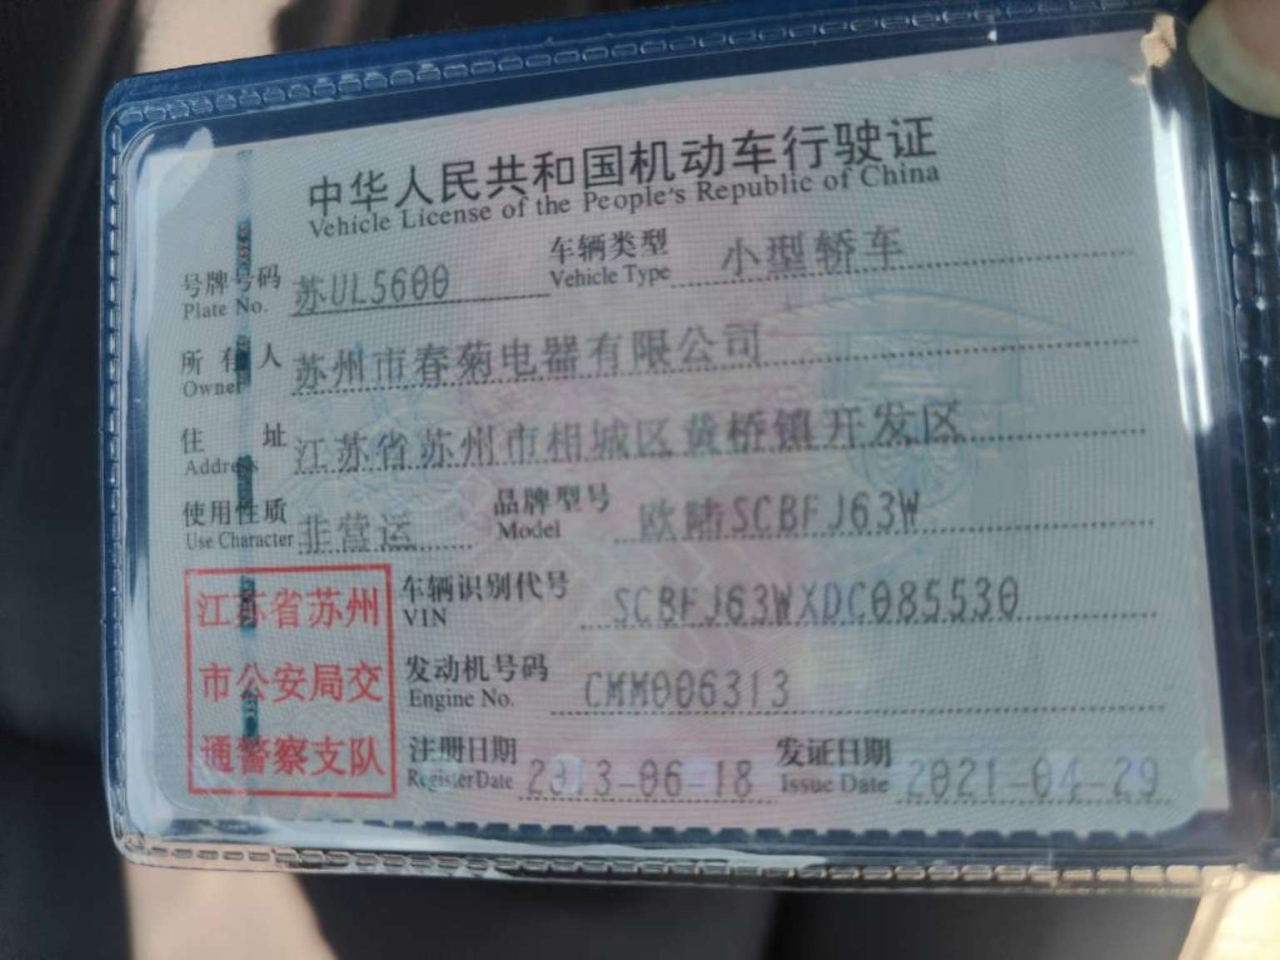 中华人民共和国机动车行驶证
Vehicle License of the People's Republic of China
号牌号码 苏UL5600 车辆类型 小型轿车
Plate No. Vehicle Type
所有人 苏州市春菊电器有限公司
Owner
住址 江苏省苏州市相城区黄桥镇开发区
Address
使用性质 非营运 品牌型号 欧陆SCBFJ63W
Use Character Model
车辆识别代号 SCBFJ63WXDC085530
VIN
发动机号码 CMM006313
Engine No.
注册日期 2013-06-18 发证日期 2021-04-29
Register Date Issue Date
江苏省苏州
市公安局交
通警察支队